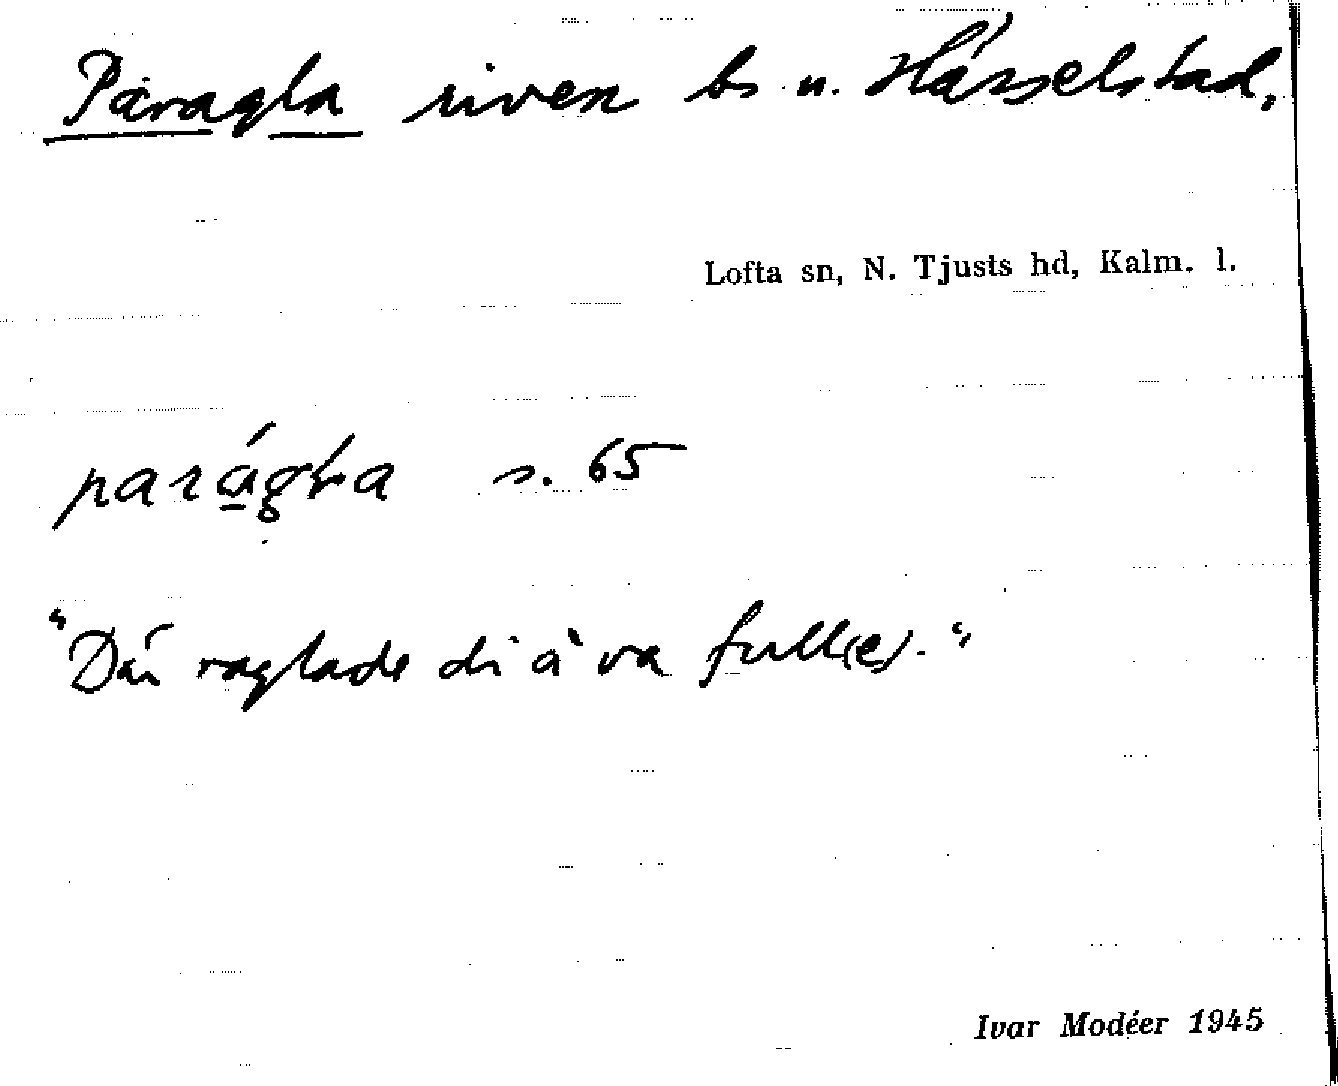 Paragla riven bs u. Hässelstad,
Lofta sn, N. Tjusts hd, Kalm. l.
parágla s. 65
"Där raglade di à va full(e)."
Ivar Modéer 1945